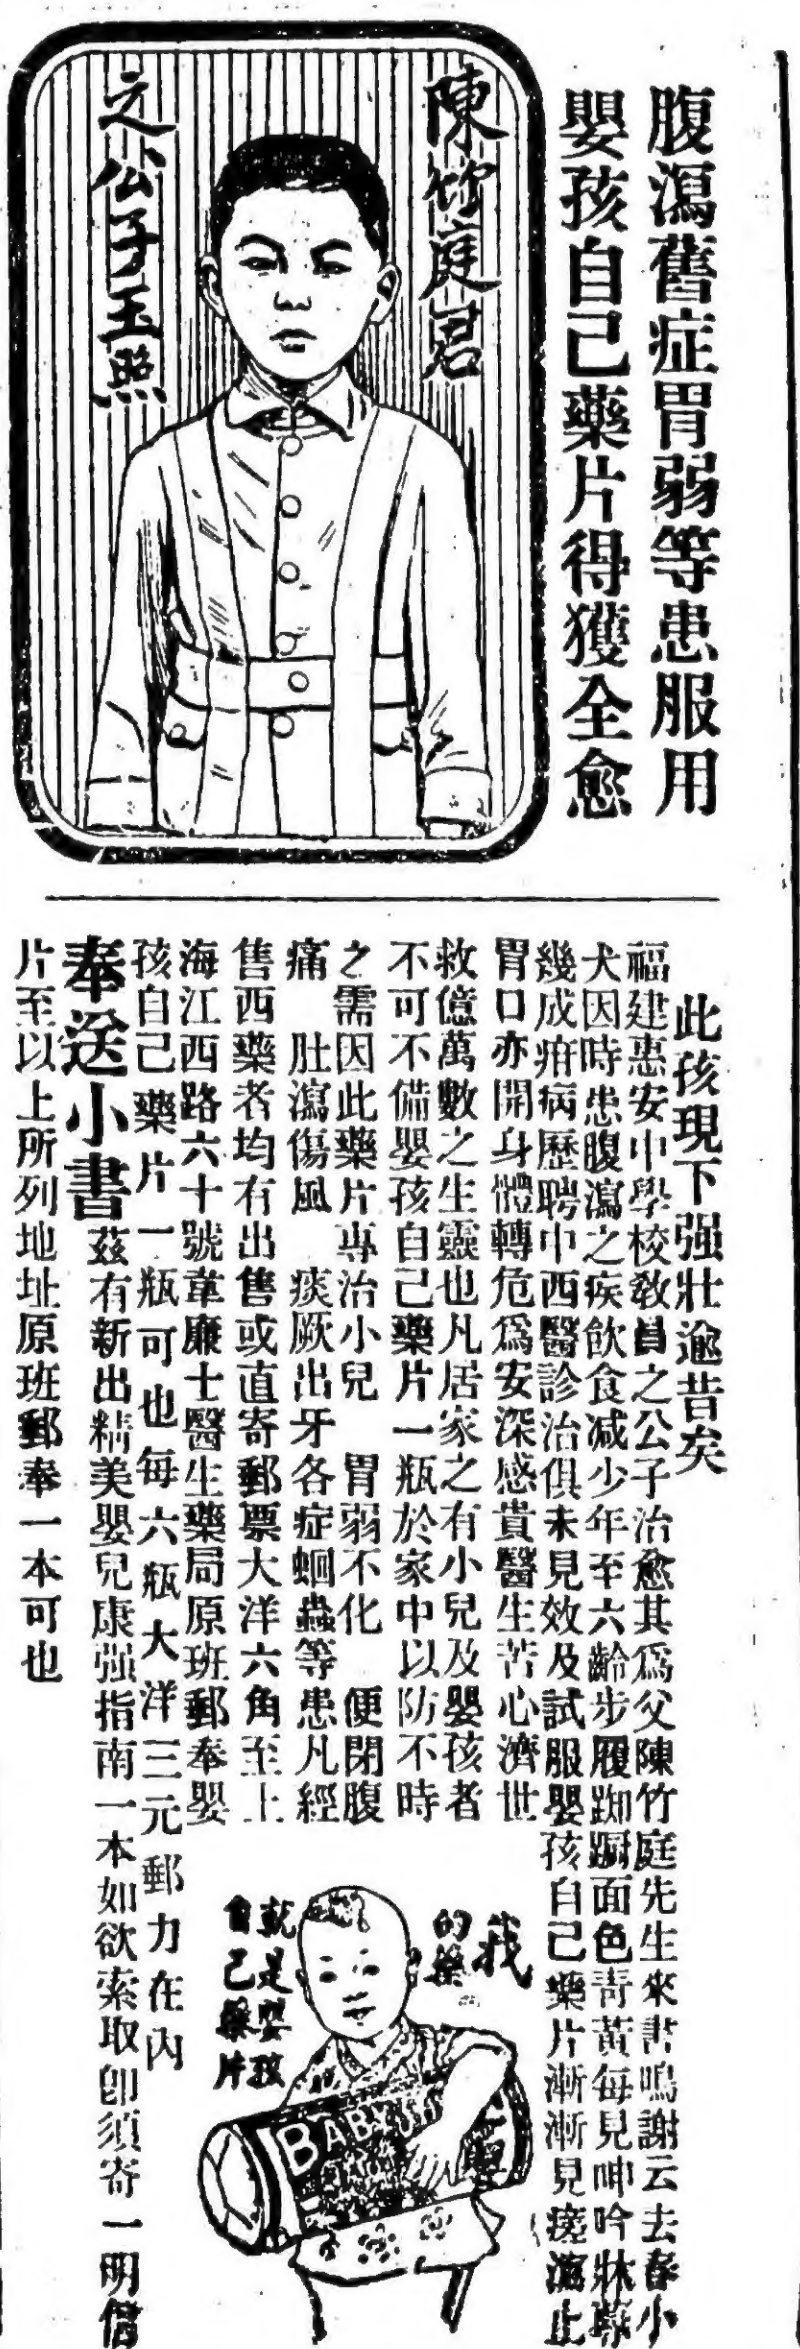 腹瀉舊症胃弱等患服用
嬰孩自己藥片得獲全愈
陳竹庭君
之公子玉照
此孩現下强壯逾昔矣
福建惠安中學校教員之公子治愈其爲父陳竹庭先生來書鳴謝云去春小
犬因時患腹瀉之疾飲食减少年至六齡步履踟蹰面色靑黃每見呻吟牀蓐
幾成疳病歷聘中西醫診治俱未見效及試服嬰孩自己藥片漸漸見瘥瀉止
胃口亦開身體轉危爲安深感貴醫生苦心濟世
救億萬數之生靈也凡居家之有小兒及嬰孩者
不可不備嬰孩自己藥片一瓶於家中以防不時
之需因此藥片專治小兒 胃弱不化 便閉腹
痛 肚瀉傷風 痰厥出牙各症蛔蟲等患凡經
售西藥者均有出售或直寄郵票大洋六角至上
海江西路六十號韋廉士醫生藥局原班郵奉嬰
孩自己藥片一瓶可也每六瓶大洋三元郵力在內
奉送小書 茲有新出精美嬰兒康强指南一本如欲索取卽須寄一明信
片至以上所列地址原班郵奉一本可也
我
的藥
就是嬰孩
自己藥片
BABY